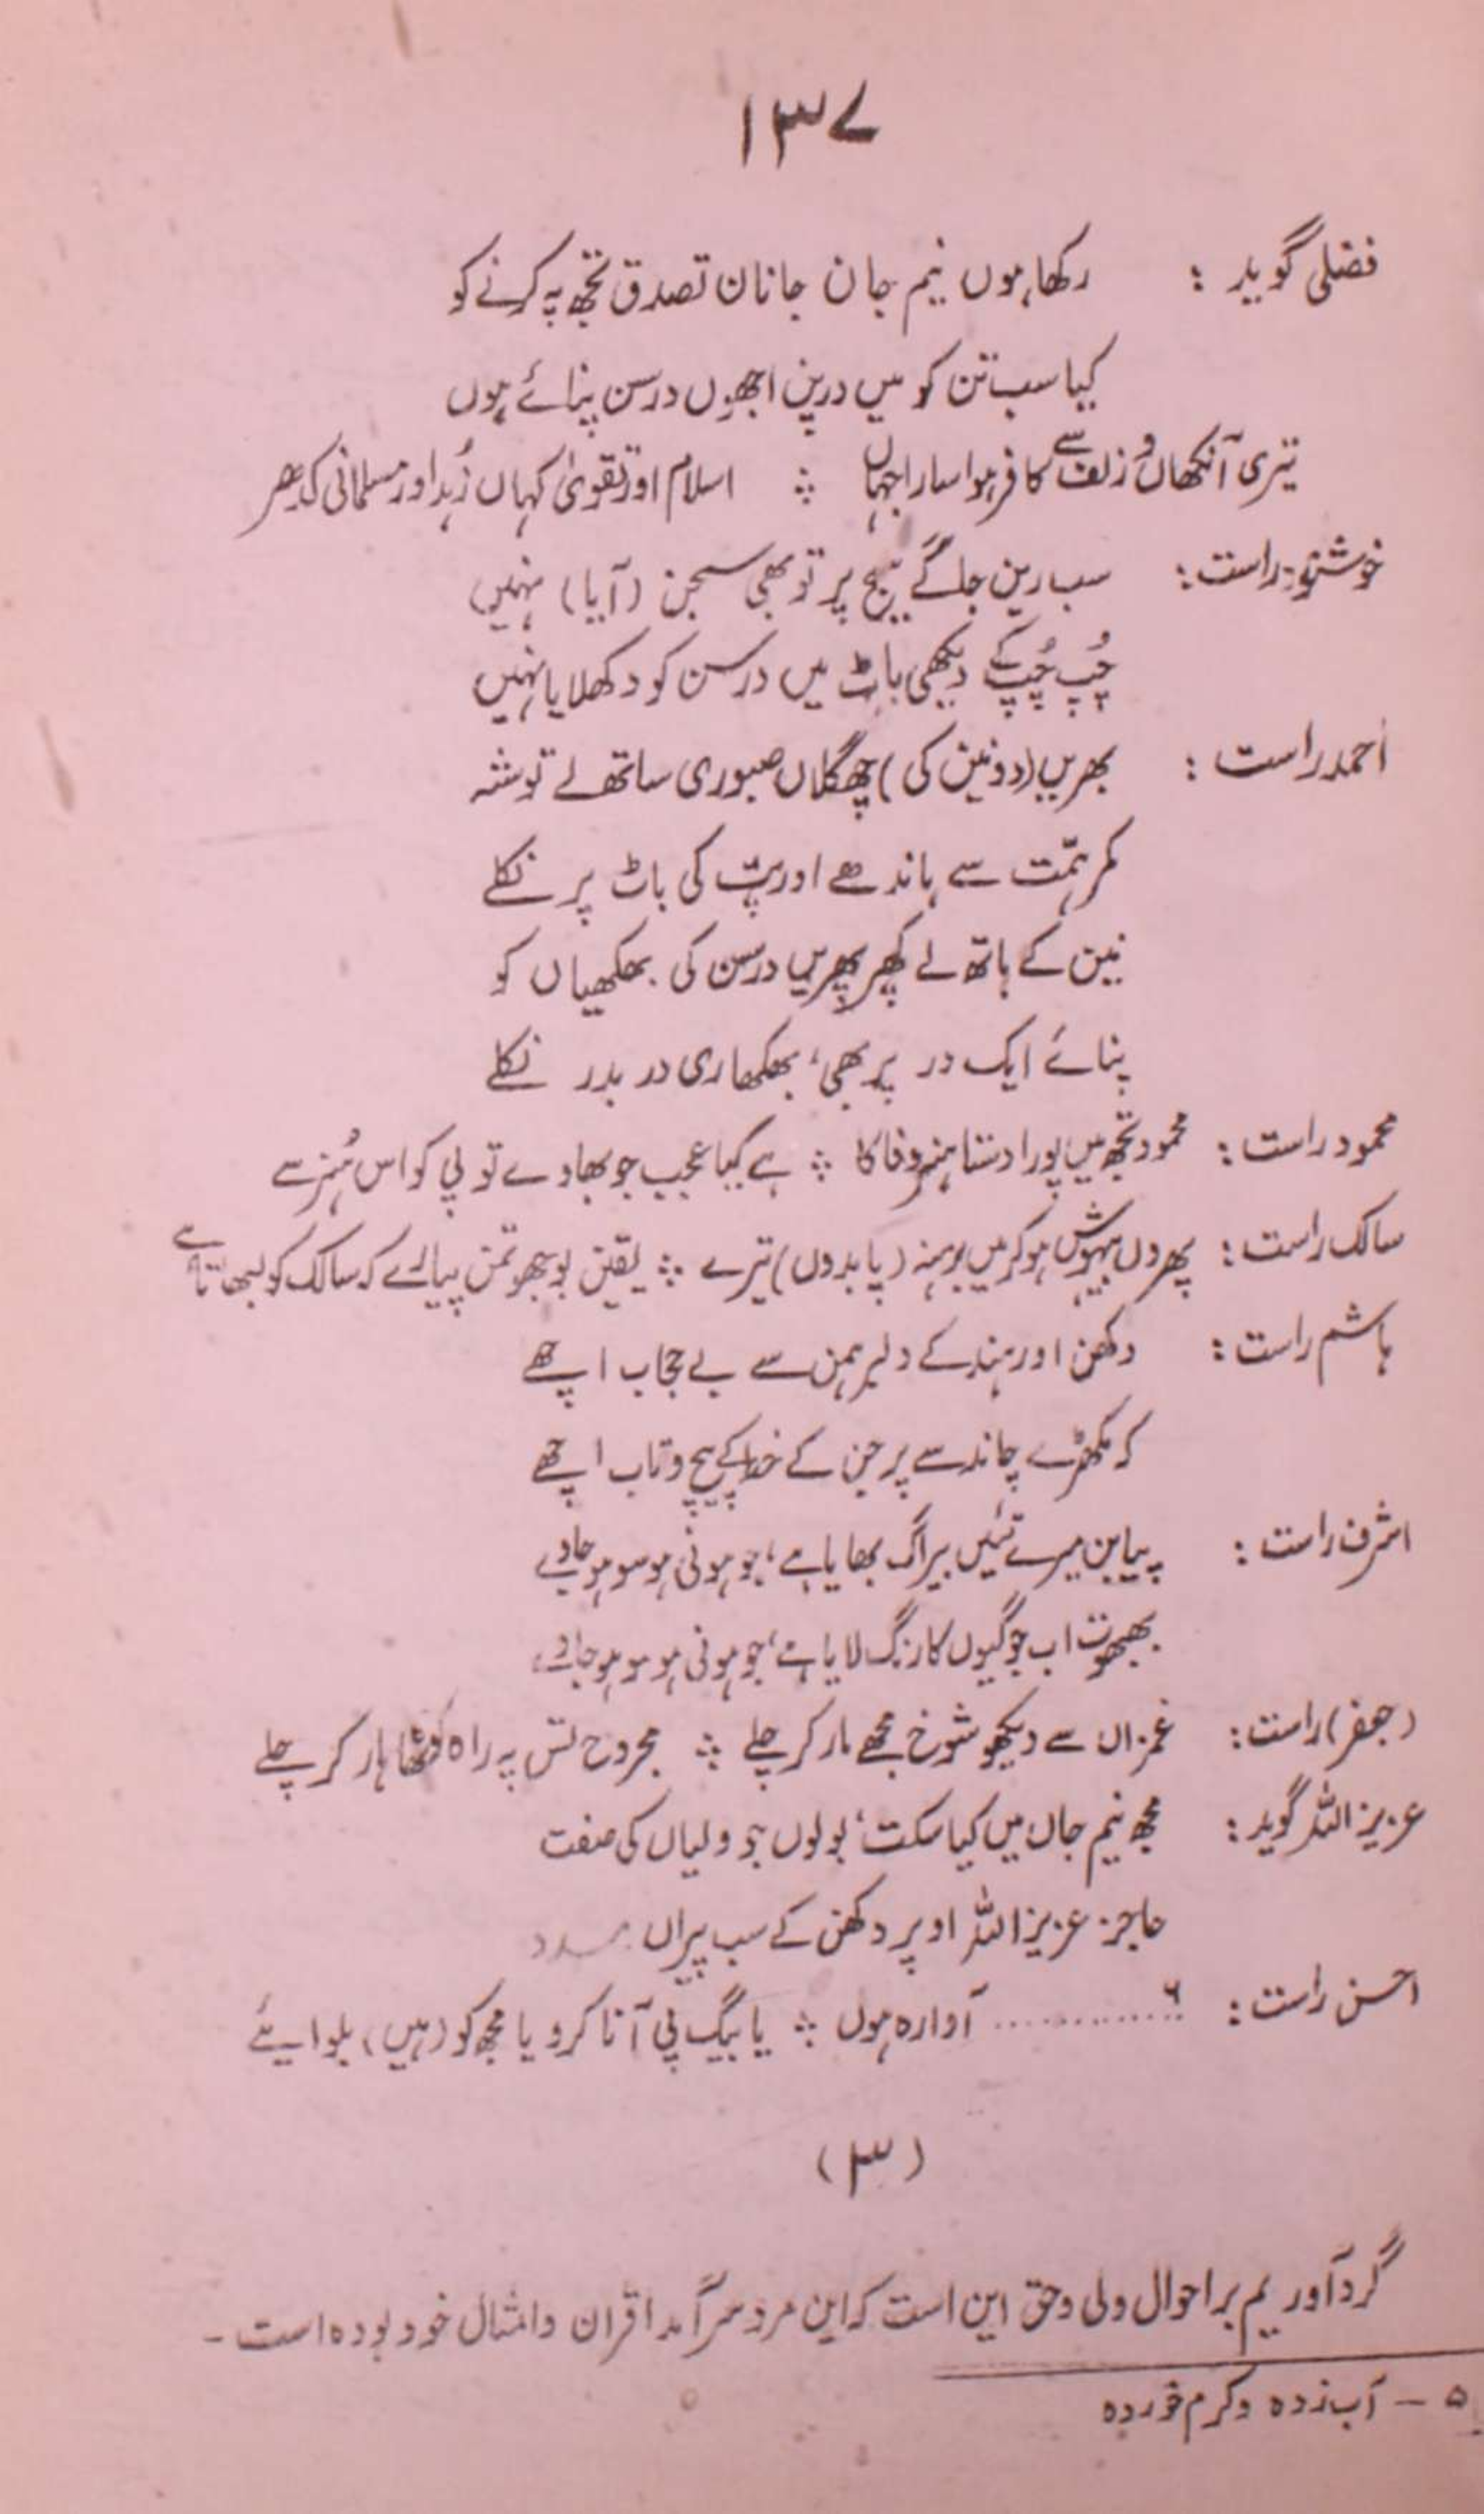 ۱۳۷
فضلی گوید : رکھا ہوں نیم جان جانان تصدق تجھ پہ کرنے کو
کیا سب تن کو میں درپن اجھوں درسن پنائے ہوں
تیری آنکھاں و زلف سے کافر ہوا سارا جہاں ؞ اسلام اور تقویٰ کہاں زُہد اور مسلمانی کدھر
خوشنود راست : سب رین جاگے سیج پر تو بھی سجن (آیا) نہیں
چُپ چُپ کے دیکھی باٹ میں درسن کو دکھلایا نہیں
احمد راست : بھریں (دو نین کی) چھگلاں صبوری ساتھ لے توشہ
کمر ہمّت سے باندھے اور پت کی باٹ پر نکلے
نین کے ہاتھ لے کھپر پھریں درسن کی بھکھیاں کو
پنائے ایک در پر بھی، بھکھاری در بدر نکلے
محمود راست : محمود تجھ میں پورا دستا ہنر وفا کا ؞ ہے کیا عجب جو بھاوے تو پی کو اس ہُنر سے
سالک راست : پھروں بیہوش ہو کر میں برہنہ (پا بدوں) تیرے ؞ یقین بوجھو تمن پیارے کہ سالک کو لبھاتا ہے
ہاشم راست : دکھن اور ہند کے دلبر ہمن سے بے حجاب اچھے
کہ مکھڑے چاند سے پر جن کے خط کے پیچ و تاب اچھے
اشرف راست : پیا بن میرے تئیں بیراگ بھایا ہے، جو ہونی ہو سو ہو جاوے
بھبھوت اب جوگیوں کا رنگ لایا ہے، جو ہونی ہو سو ہو جاوے
(جعفر) راست : غمزاں سے دیکھو شوخ مجھے مار کر چلے ؞ مجروح تس پہ راہ مٹھا ہار کر چلے
عزیز اللہ گوید : مجھ نیم جاں میں کیا سکت، بولوں جو ولیاں کی صفت
عاجز عزیز اللہ اوپر دکھن کے سب پیراں مدد
احسن راست : ............ ۶ آوارہ ہوں ؞ یا بیگ پی آنا کرو یا مجھ کو (ہیں) بلوایئے
(۳)
گرد آوریم بر احوال ولی وحق این است کہ این مرد سر آمد اقران و امثال خود بودہ است ۔
۵ – آب زدہ و کرم خوردہ